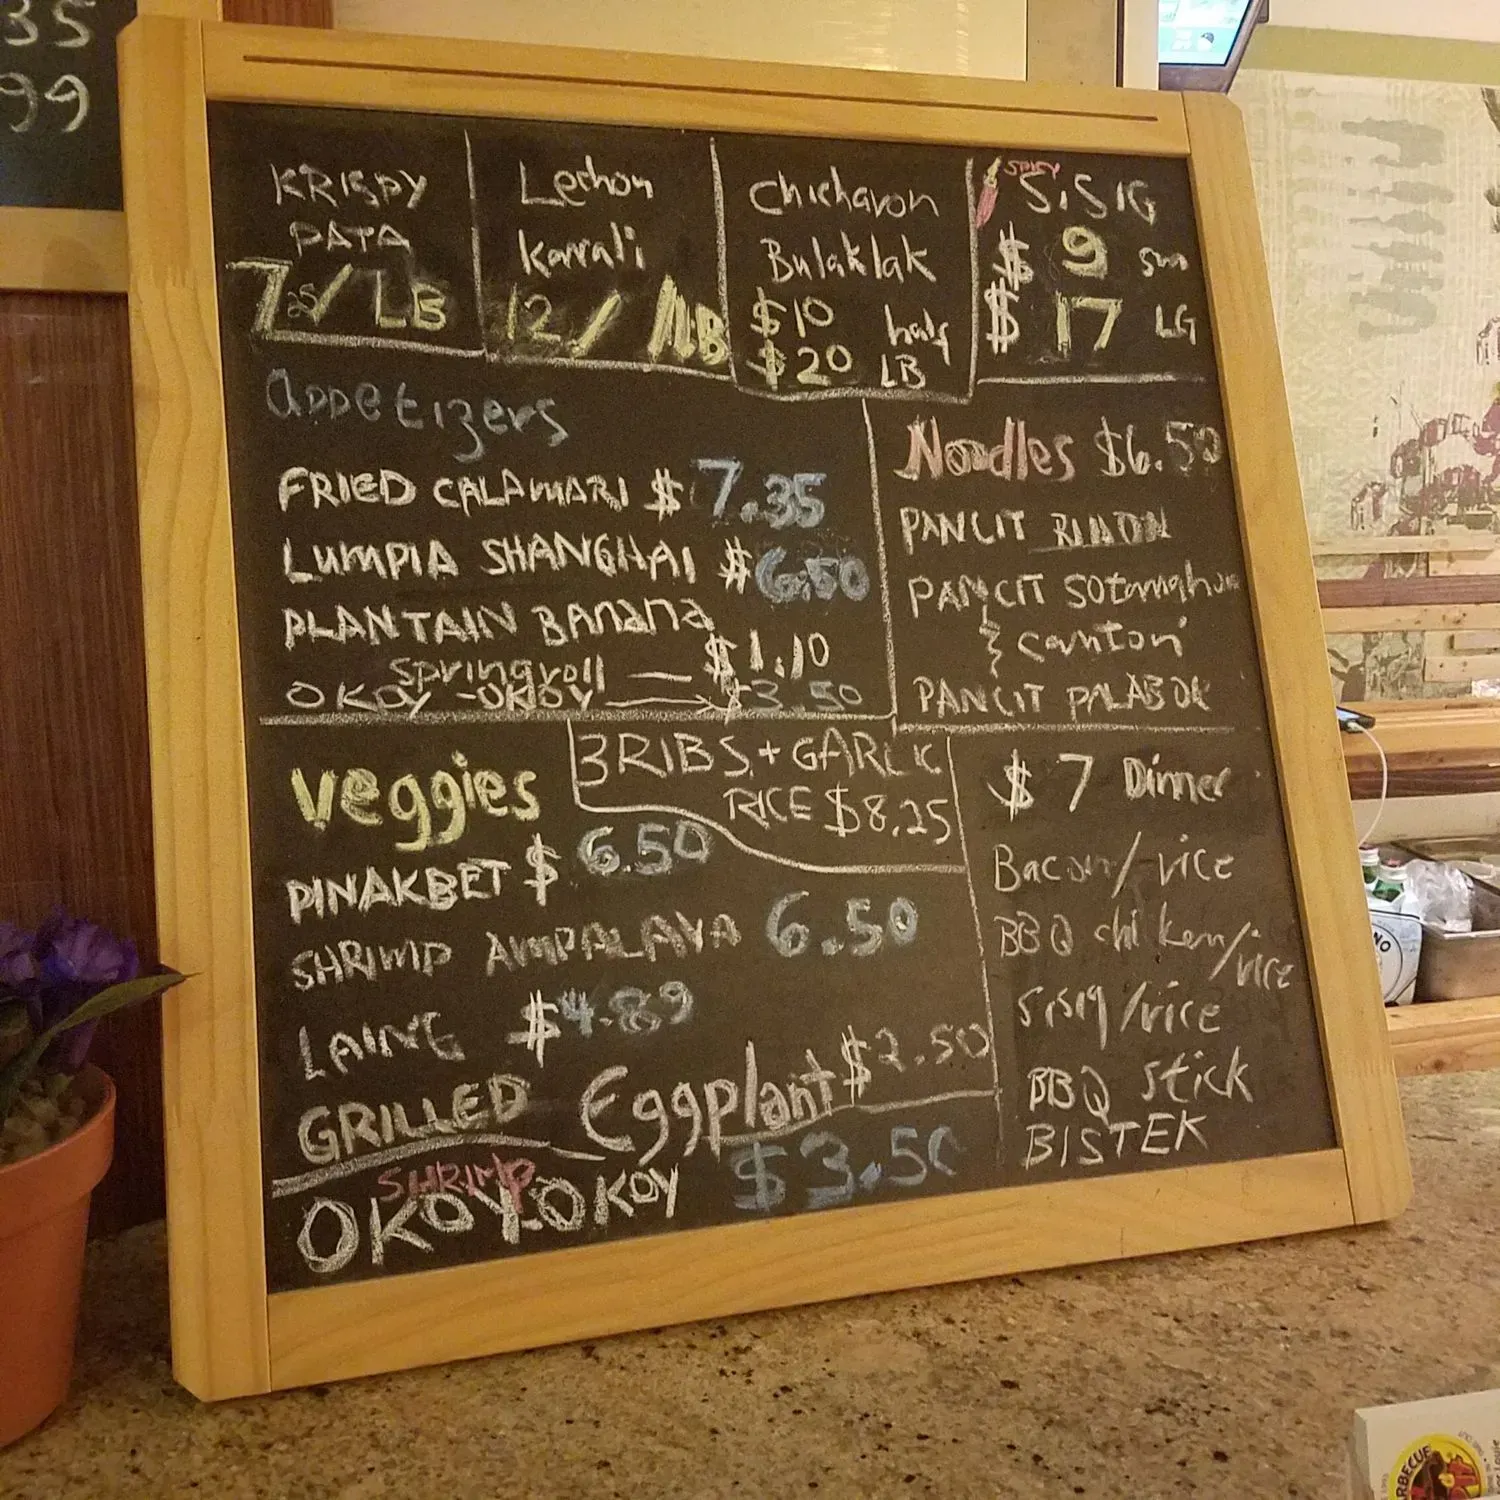 35
99
KRISPY
PATA
7 35/ LB
Lechon
Kawali
12/ LB
Chicharon
Bulaklak
$10 half
$20 LB
SPICY
SiSIG
$ 9 sm
$ 17 LG
appetizers
FRIED CALAMARI $7.35
LUMPIA SHANGHAI $6.50
PLANTAIN BANANA
springroll — $1.10
OKOY-OKOY → $3.50
Noodles $6.50
PANCIT BIHON
PANCIT Sotanghon
canton
PANCIT PALABOK
veggies
PINAKBET $6.50
SHRIMP AMPALAYA 6.50
LAING $4.89
GRILLED Eggplant $2.50
SHRIMP
OKOY-OKOY $3.50
3 RIBS + GARLIC
RICE $8.25
$7 Dinner
Bacon/rice
BBQ chicken/rice
Sisig/rice
BBQ stick
BISTEK
NO
RBECUE